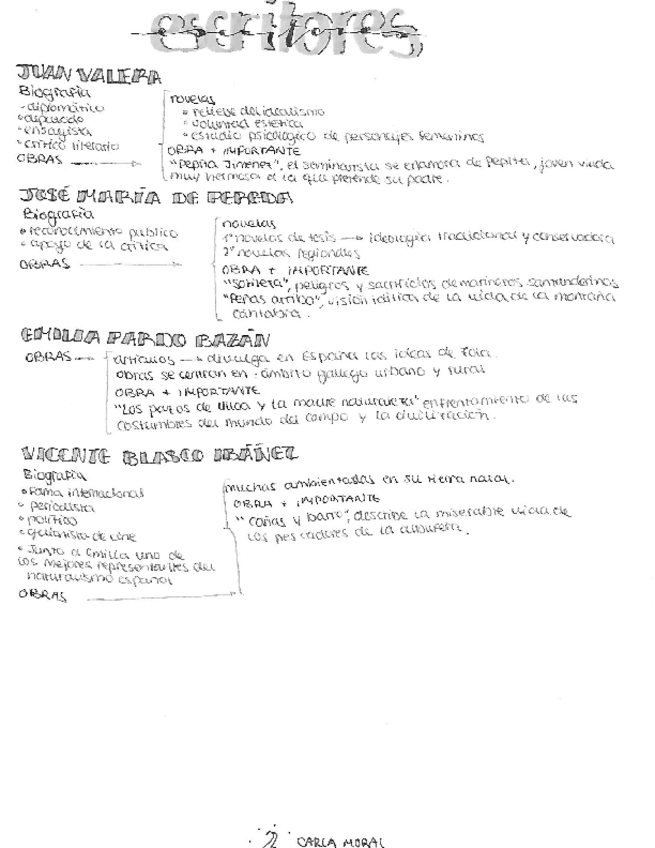 escritores
JUAN VALERA
Biografía
- diplomático
• diputado
• ensayista
• crítico literario
OBRAS →
novelas
• relieve del idealismo
• voluntad estética
• estudio psicológico de personajes femeninos
OBRA + IMPORTANTE
"Pepita Jiménez", el seminarista se enamora de Pepita, joven viuda
muy hermosa a la que pretende su padre.
JOSÉ MARÍA DE PEREDA
Biografía
• reconocimiento público
• apoyo de la crítica
OBRAS →
novelas
1º novelas de tesis → ideología tradicional y conservadora
2º novelas regionales
OBRA + IMPORTANTE
"Sotileza", peligros y sacrificios de marineros santanderinos
"Peñas arriba", visión idílica de la vida de la montaña
cántabra.
EMILIA PARDO BAZÁN
OBRAS →
artículos → divulga en España las ideas de Zola.
obras se centran en · ámbito gallego urbano y rural
OBRA + IMPORTANTE
"Los pazos de Ulloa y La madre naturaleza" enfrentamiento de las
costumbres del mundo del campo y la civilización.
VICENTE BLASCO IBÁÑEZ
Biografía
• Fama internacional
• periodista
• político
• guionista de cine
• Junto a Emilia uno de
los mejores representantes del
naturalismo español
OBRAS →
muchas ambientadas en su tierra natal.
OBRA + IMPORTANTE
"Cañas y barro", describe la miserable vida de
los pescadores de la albufera.
2 CARLA MORAL